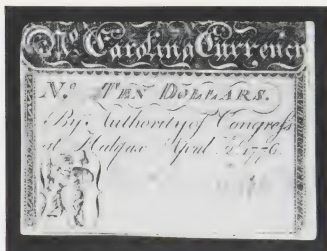 No. Carolina Currency
No. TEN DOLLARS.
By Authority of Congress
at Halifax April 2d. 1776.